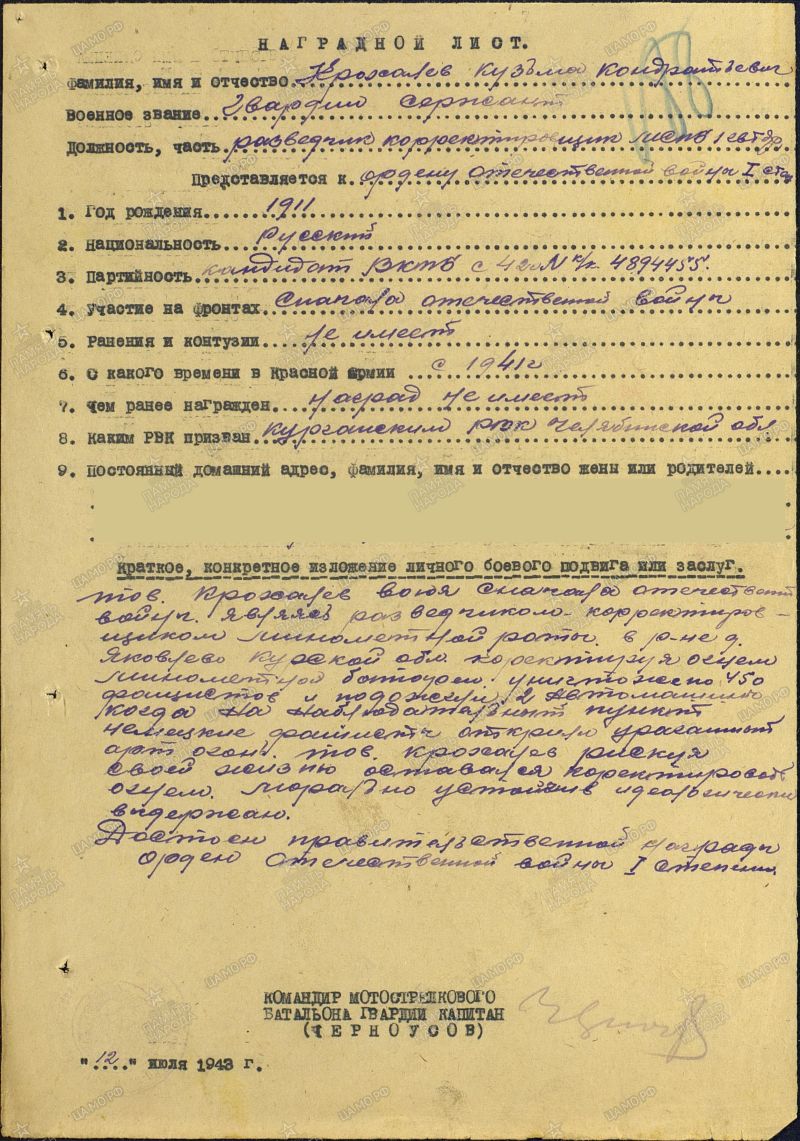 НАГРАДНОЙ ЛИСТ.
Фамилия, имя и отчество Крохалев Кузьма Кондратьевич
Военное звание Гвардии сержант
Должность, часть разведчик корректировщик мспб 1 гв тбр
Представляется к ордену отечественной войны I степ
1. Год рождения 1911
2. Национальность Русский
3. Партийность кандидат ВКПб с 42г N к/к 4894455.
4. Участие на фронтах Сначала отечественной войны
5. Ранения и контузии не имеет
6. С какого времени в Красной армии с 1941г
7. Чем ранее награжден наград не имеет
8. Каким РВК призван Курганским рвк Челябинской обл
9. Постоянный домашний адрес, фамилия, имя и отчество жены или родителей
Краткое, конкретное изложение личного боевого подвига или заслуг.
тов. Крохалев воюя сначала отечествен
войны. являясь разведчиком-корректиров-
щиком минометной роты. в р-не д.
Яковлево Курской обл. коректируя огнем
минометной батореи уничтожено 450
фашистов и подожжено 2 автомашины
когда на наблюдательный пункт
немецкие фашисты открыли ураганный
арт огонь. тов. Крохалев рискуя
своей жизнью оставался коректировать
огнем. Морально устойчив идеологически
выдержан.
Достоен правительственной награды
орден отечественной войны I степени.
КОМАНДИР МОТОСТРЕЛКОВОГО
БАТАЛЬОНА ГВАРДИИ КАПИТАН
(ЧЕРНОУСОВ)
"12" июля 1943 г.